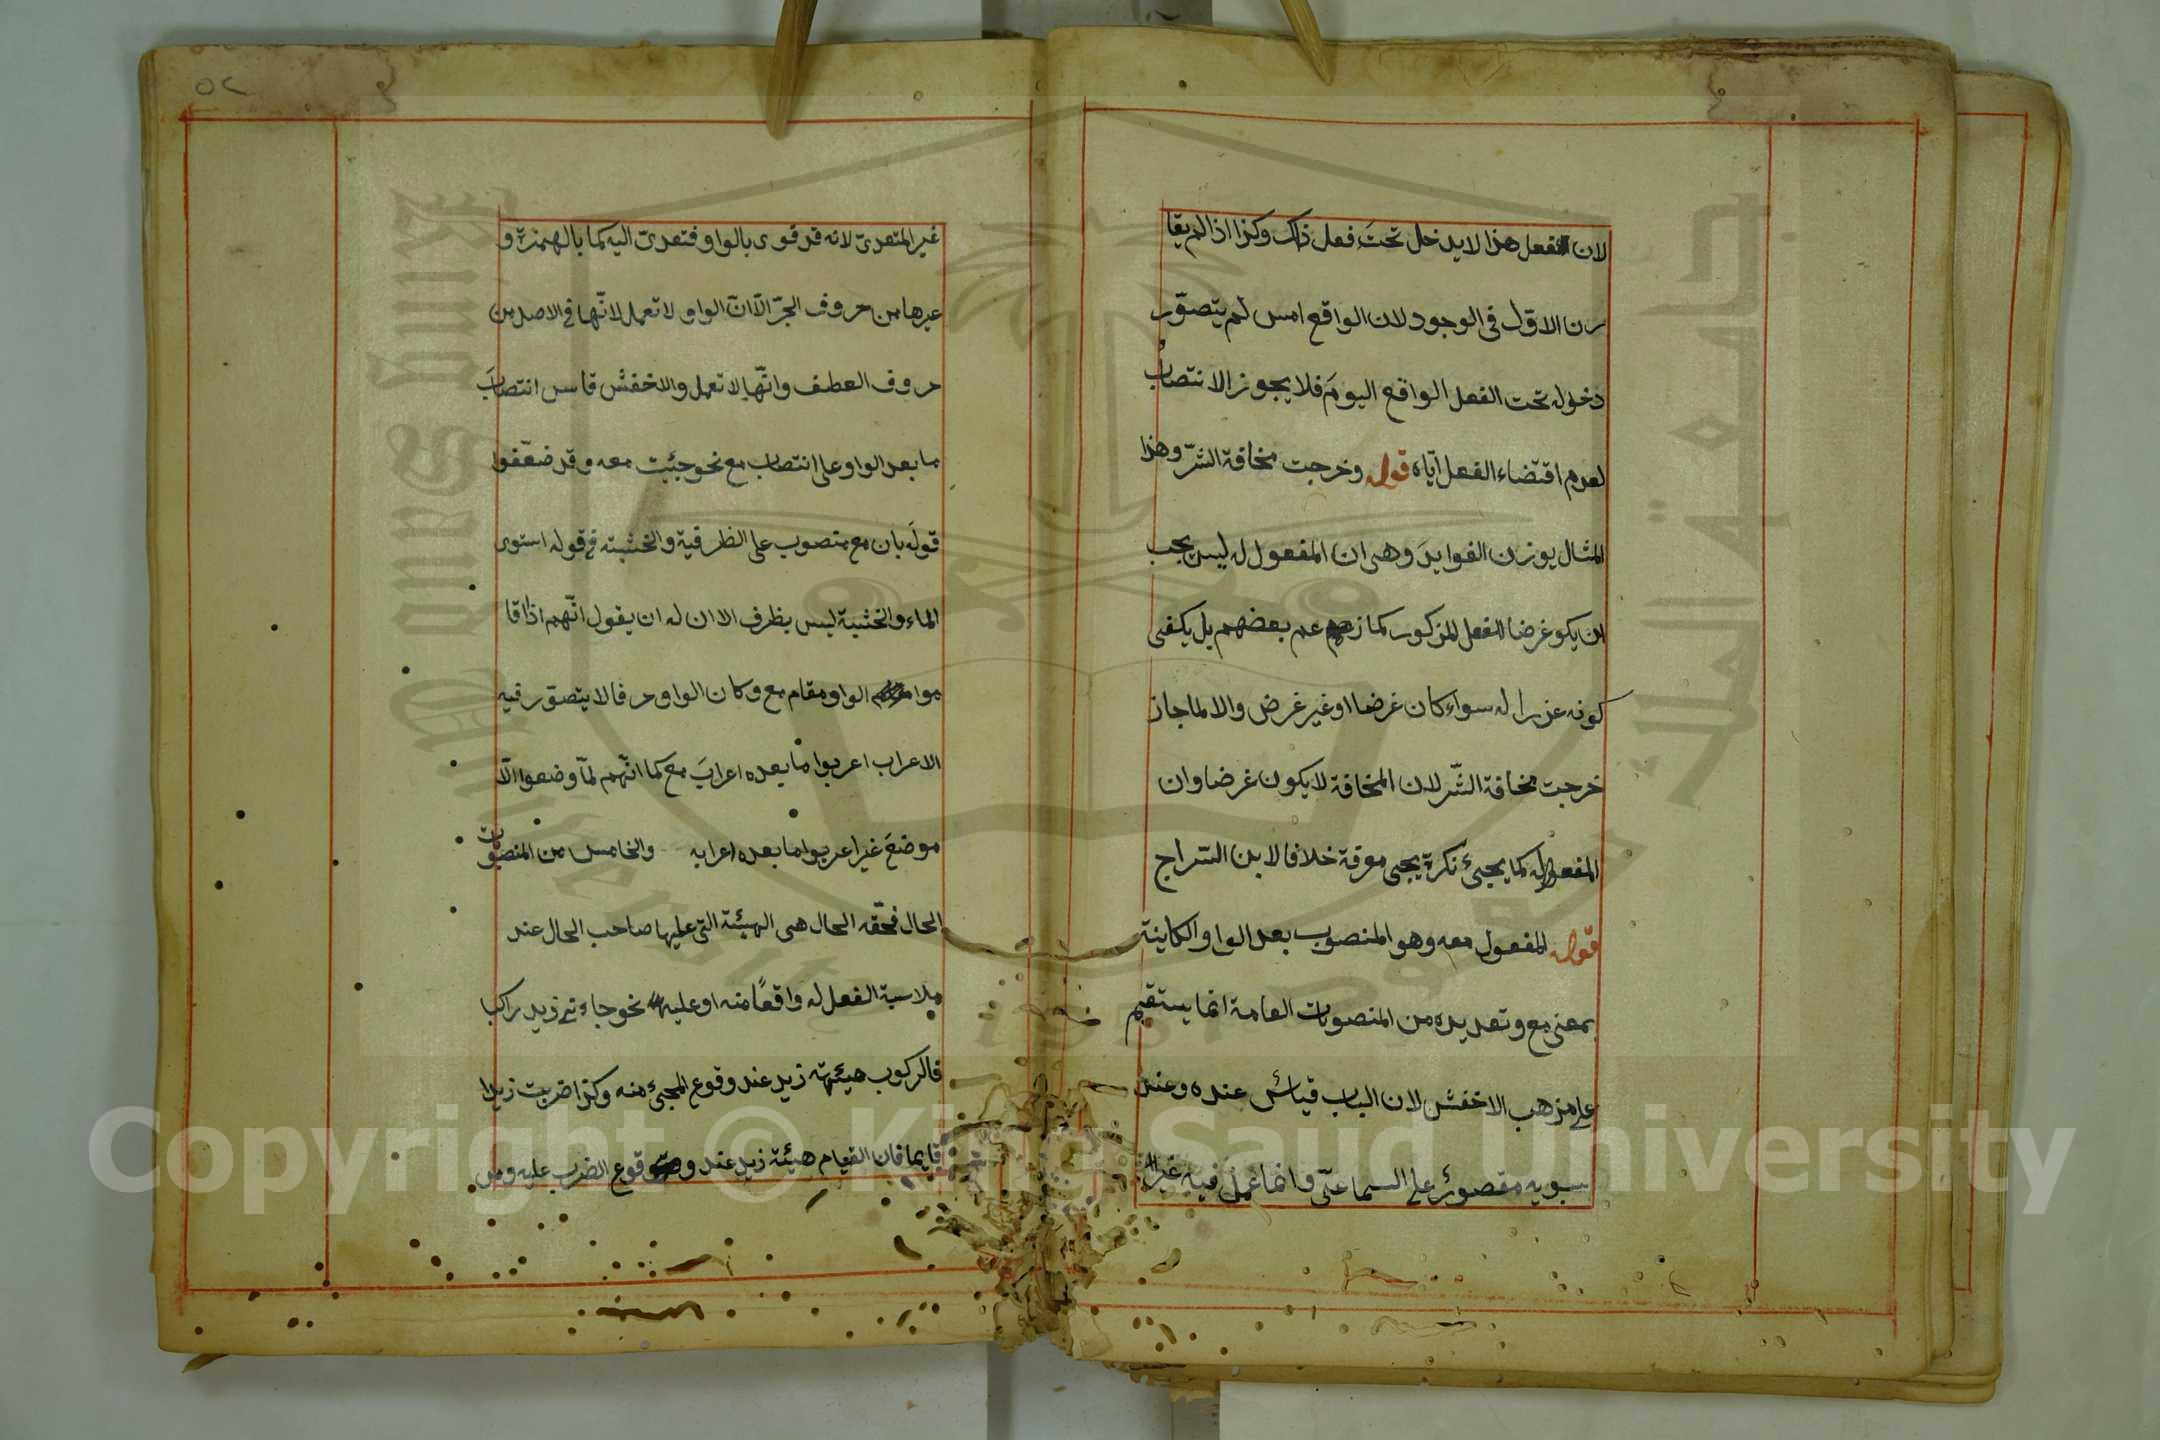 لان الفعل هذا لا يدخل تحتَ فعل ذاك وكذا اذا لم يقا
رن الاوّل فى الوجود لان الواقع امس لم يتصوّر
دخوله تحت الفعل الواقع اليومَ فلا يجوز الانتصابُ
لعدم اقتضاء الفعل ايّاه قوله وخرجت مخافة الشرّ وهذا
المثال يوزن الفوايدَ وهى ان المفعول له ليس يجب
ان يكو غرضا للفعل المذكور كما زعم بعضهم بل يكفى
كونه عذرا له سواء كان غرضا او غير غرض والا لما جاز
خرجت مخافة الشّر لان المخافة لا يكون غرضا وان
المفعول له كما يجيئ نكرة يجى معرفة خلافا لابن السّراج
قوله المفعول معه وهو المنصوب بعد الواو الكاينة
بمعنى مع وتعديده من المنصوبات العامة انما يستقيم
على مذهب الاخفش لان الباب قياسٌ عنده وعند
سبويه مقصورٌ على السماعىّ وانما عمل فيه غير
غير المتعدىّ لانه قد قوى بالواو فتعدىّ اليه كما بالهمزة و
غيرها من حروف الجرّ الّا انّ الواو لا تعمل لانّها فى الاصل من
حروف العطف وانّها لا تعمل والاخفش قاس انتصابَ
ما بعد الواو على انتصاب مع نحو جئت معه وقد ضعّفوا
قولَه بان مع منصوب على الظرفية والخشبته فى قوله استوى
الماء والخشبة ليس بظرف الا ان له ان يقول انّهم اذا قا
موا الواو مقام مع وكان الواو حرفا لا يتصوّر فيه
الاعراب اعربوا ما بعده اعرابَ مع كما انّهم لمّا وضعوا الّا
موضعَ غير اعربوا ما بعده اعرابه والخامس من المنصوبات
الحال فحّقه الحال هى الهيئة التى عليها صاحب الحال عند
ملابسة الفعل له واقعًا منه او عليه نحو جاءنى زيد راكبا
فالركوب هيئهته زيد عند وقوع المجئ منه وكذا ضربت زيدا
قايما فان القيام هيئة زيد عند وقوع الضرب عليه ومن
٥٢
Copyright © King Saud University
King Saud University
جامعة الملك سعود
1957